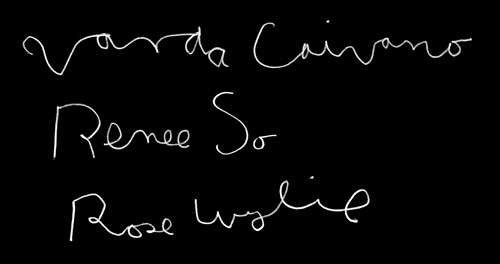 Varda Caivano
Renee So
Rose Wylie